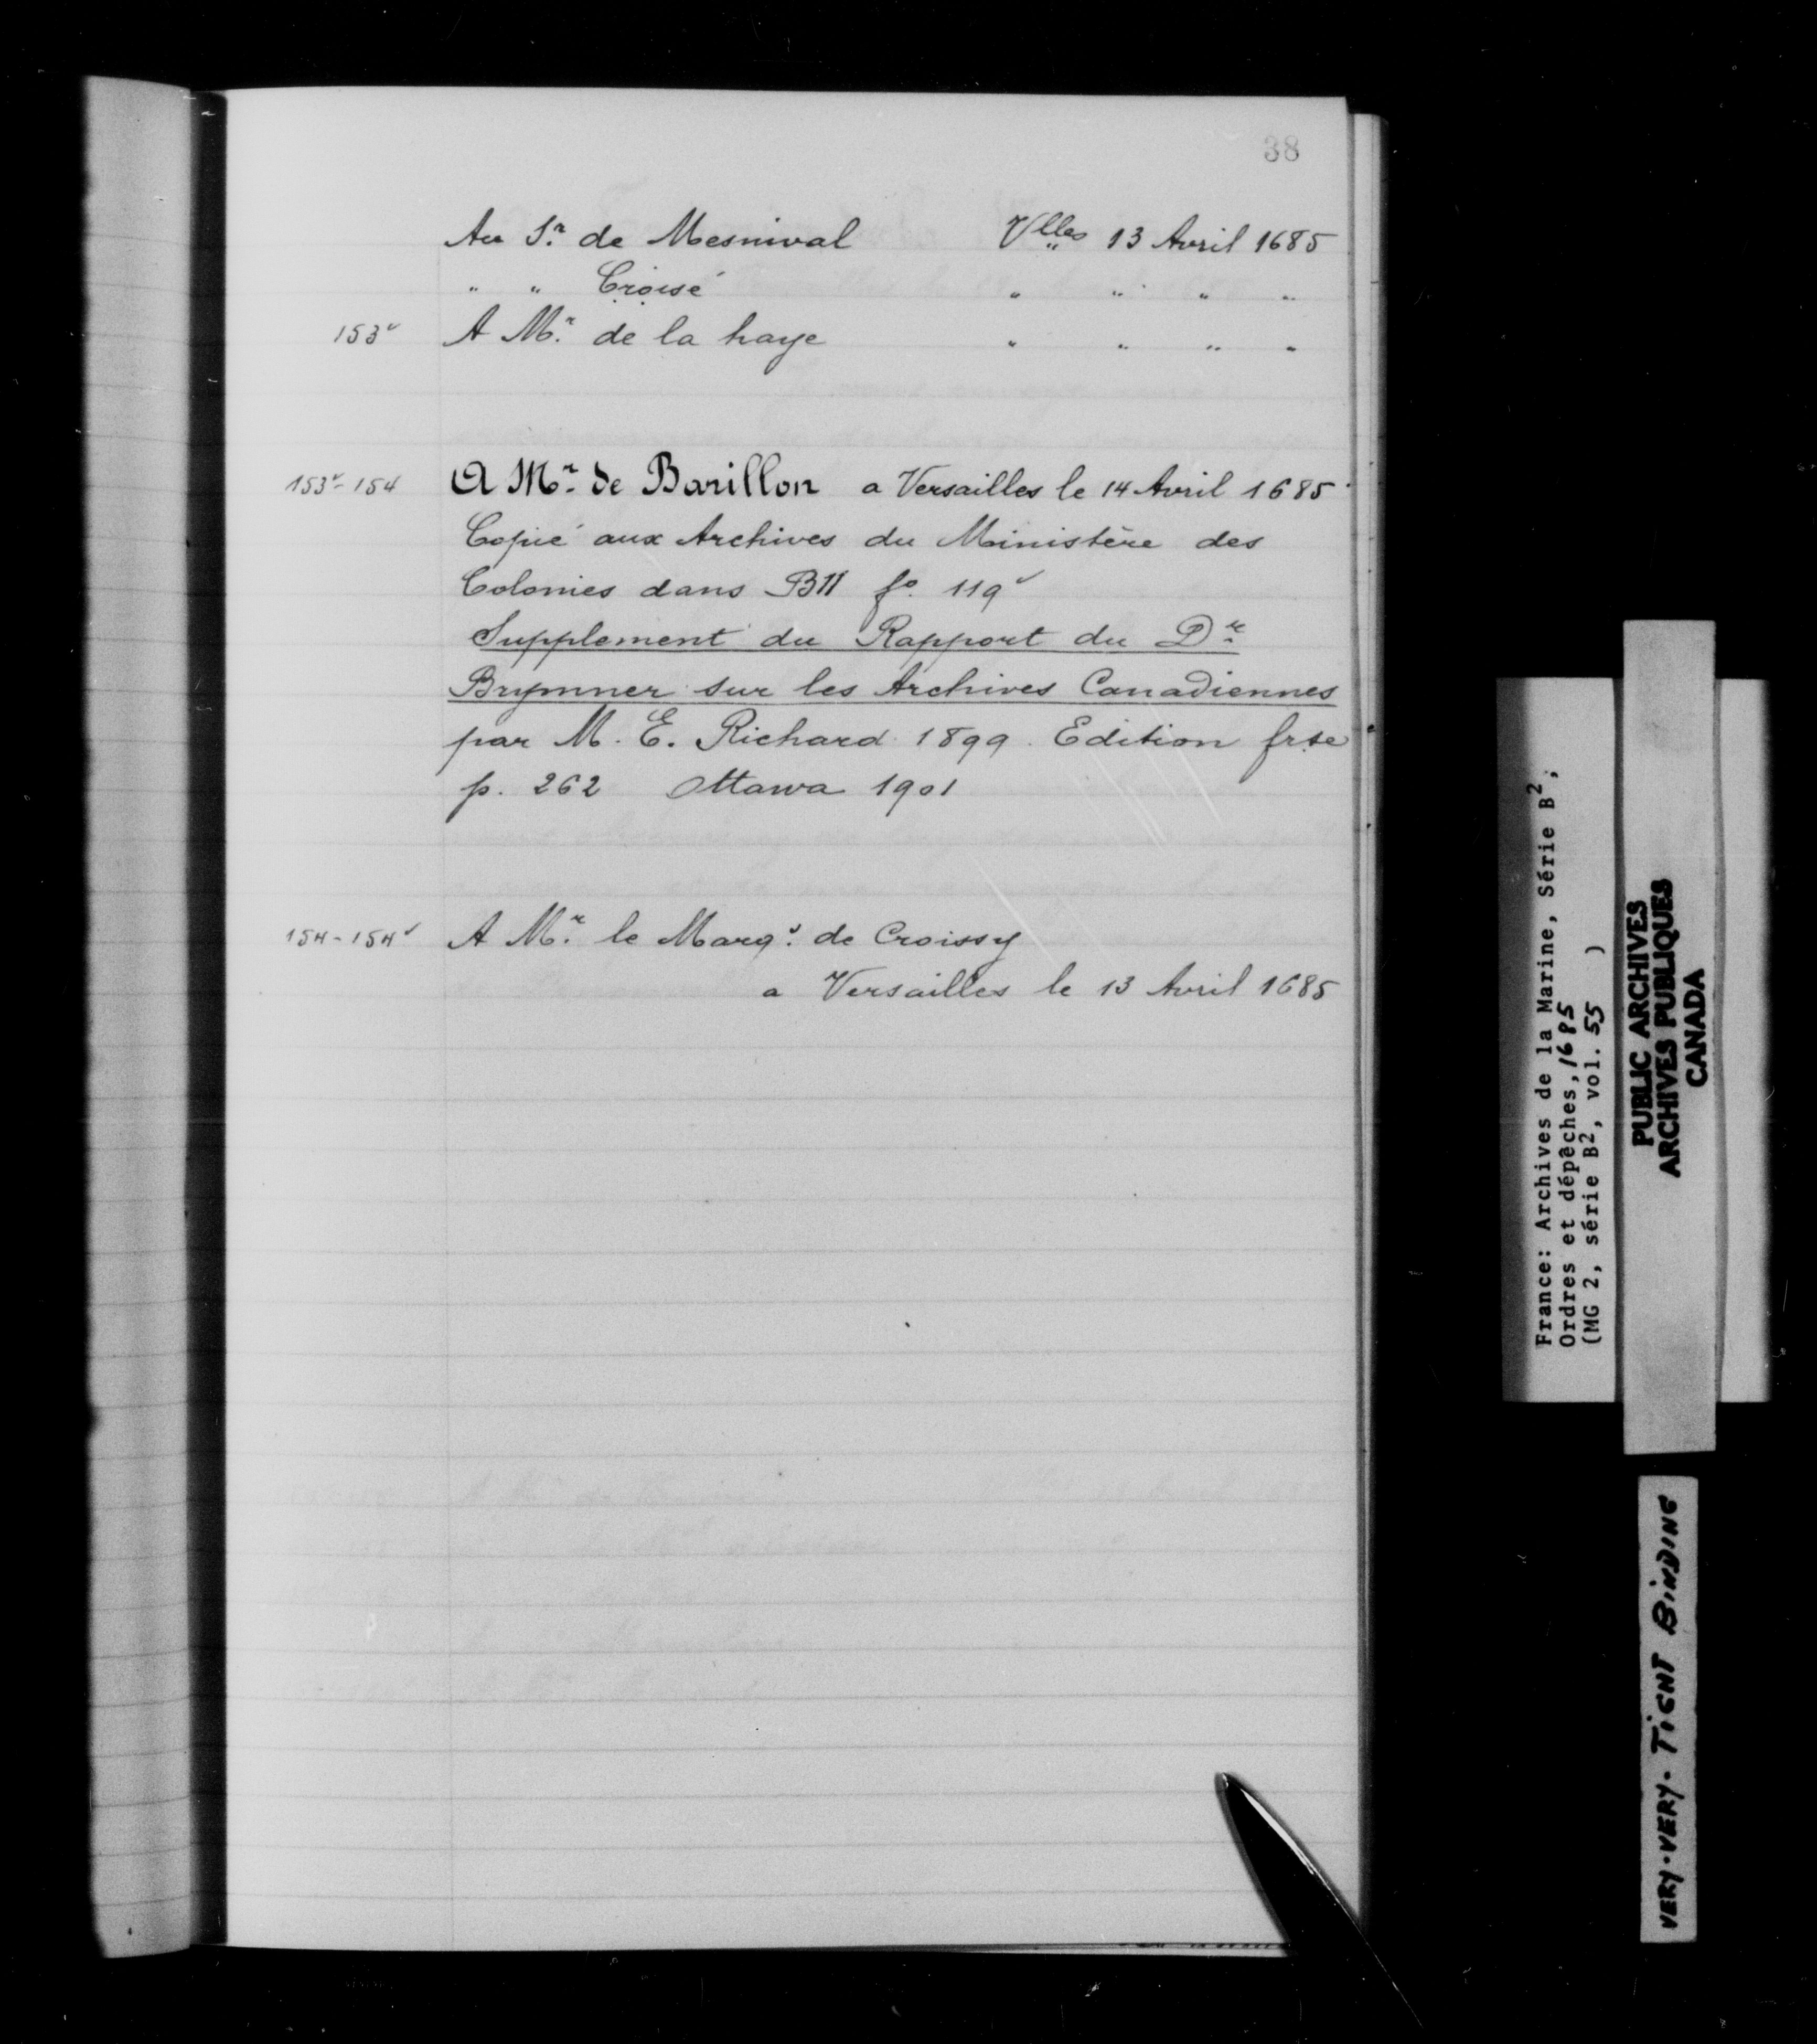 38
Au Sr. de Mesnival Vlles 13 Avril 1685
" " Croisé " " " "
153v A Mr. de la haye " " " "
153v-154 A Mr. de Barillon a Versailles le 14 Avril 1685
Copié aux Archives du Ministère des
Colonies dans B11 fo. 119v
Supplement du Rapport du Dr.
Brymner sur les Archives Canadiennes
par M. E. Richard 1899. Edition frse
p. 262 Ottawa 1901
154-154v A Mr. le Marqs. de Croissy
a Versailles le 13 Avril 1685
France: Archives de la Marine, Série B2,
Ordres et dépêches, 1685
(MG 2, série B2, vol. 55 )
PUBLIC ARCHIVES
ARCHIVES PUBLIQUES
CANADA
VERY-VERY-TIGHT BINDING